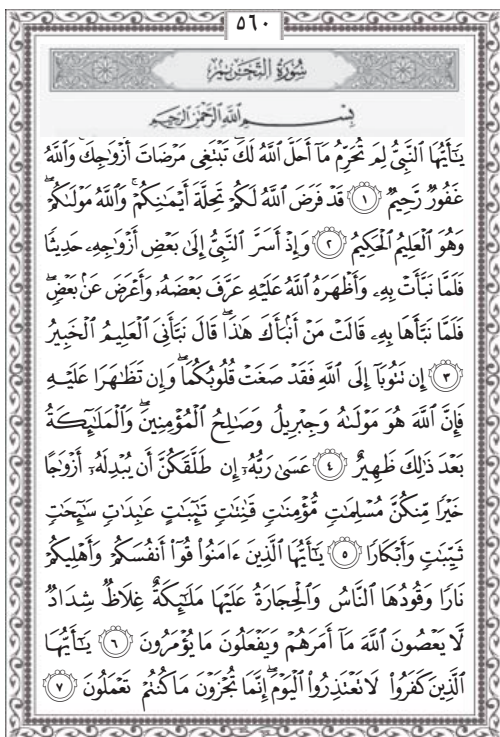 ٥٦٠
سُورَةُ التَّحْرِيمِ
بِسْمِ ٱللَّهِ ٱلرَّحْمَٰنِ ٱلرَّحِيمِ
يَٰٓأَيُّهَا ٱلنَّبِىُّ لِمَ تُحَرِّمُ مَآ أَحَلَّ ٱللَّهُ لَكَۖ تَبْتَغِى مَرْضَاتَ أَزْوَٰجِكَۚ وَٱللَّهُ
غَفُورٌ رَّحِيمٌ ١ قَدْ فَرَضَ ٱللَّهُ لَكُمْ تَحِلَّةَ أَيْمَٰنِكُمْۚ وَٱللَّهُ مَوْلَىٰكُمْۖ
وَهُوَ ٱلْعَلِيمُ ٱلْحَكِيمُ ٢ وَإِذْ أَسَرَّ ٱلنَّبِىُّ إِلَىٰ بَعْضِ أَزْوَٰجِهِۦ حَدِيثًا
فَلَمَّا نَبَّأَتْ بِهِۦ وَأَظْهَرَهُ ٱللَّهُ عَلَيْهِ عَرَّفَ بَعْضَهُۥ وَأَعْرَضَ عَنۢ بَعْضٍۖ
فَلَمَّا نَبَّأَهَا بِهِۦ قَالَتْ مَنْ أَنۢبَأَكَ هَٰذَاۖ قَالَ نَبَّأَنِىَ ٱلْعَلِيمُ ٱلْخَبِيرُ
٣ إِن تَتُوبَآ إِلَى ٱللَّهِ فَقَدْ صَغَتْ قُلُوبُكُمَاۖ وَإِن تَظَٰهَرَا عَلَيْهِ
فَإِنَّ ٱللَّهَ هُوَ مَوْلَىٰهُ وَجِبْرِيلُ وَصَٰلِحُ ٱلْمُؤْمِنِينَۖ وَٱلْمَلَٰٓئِكَةُ
بَعْدَ ذَٰلِكَ ظَهِيرٌ ٤ عَسَىٰ رَبُّهُۥٓ إِن طَلَّقَكُنَّ أَن يُبْدِلَهُۥٓ أَزْوَٰجًا
خَيْرًا مِّنكُنَّ مُسْلِمَٰتٍ مُّؤْمِنَٰتٍ قَٰنِتَٰتٍ تَٰٓئِبَٰتٍ عَٰبِدَٰتٍ سَٰٓئِحَٰتٍ
ثَيِّبَٰتٍ وَأَبْكَارًا ٥ يَٰٓأَيُّهَا ٱلَّذِينَ ءَامَنُوا۟ قُوٓا۟ أَنفُسَكُمْ وَأَهْلِيكُمْ
نَارًا وَقُودُهَا ٱلنَّاسُ وَٱلْحِجَارَةُ عَلَيْهَا مَلَٰٓئِكَةٌ غِلَاظٌ شِدَادٌ
لَّا يَعْصُونَ ٱللَّهَ مَآ أَمَرَهُمْ وَيَفْعَلُونَ مَا يُؤْمَرُونَ ٦ يَٰٓأَيُّهَا
ٱلَّذِينَ كَفَرُوا۟ لَا تَعْتَذِرُوا۟ ٱلْيَوْمَۖ إِنَّمَا تُجْزَوْنَ مَا كُنتُمْ تَعْمَلُونَ ٧